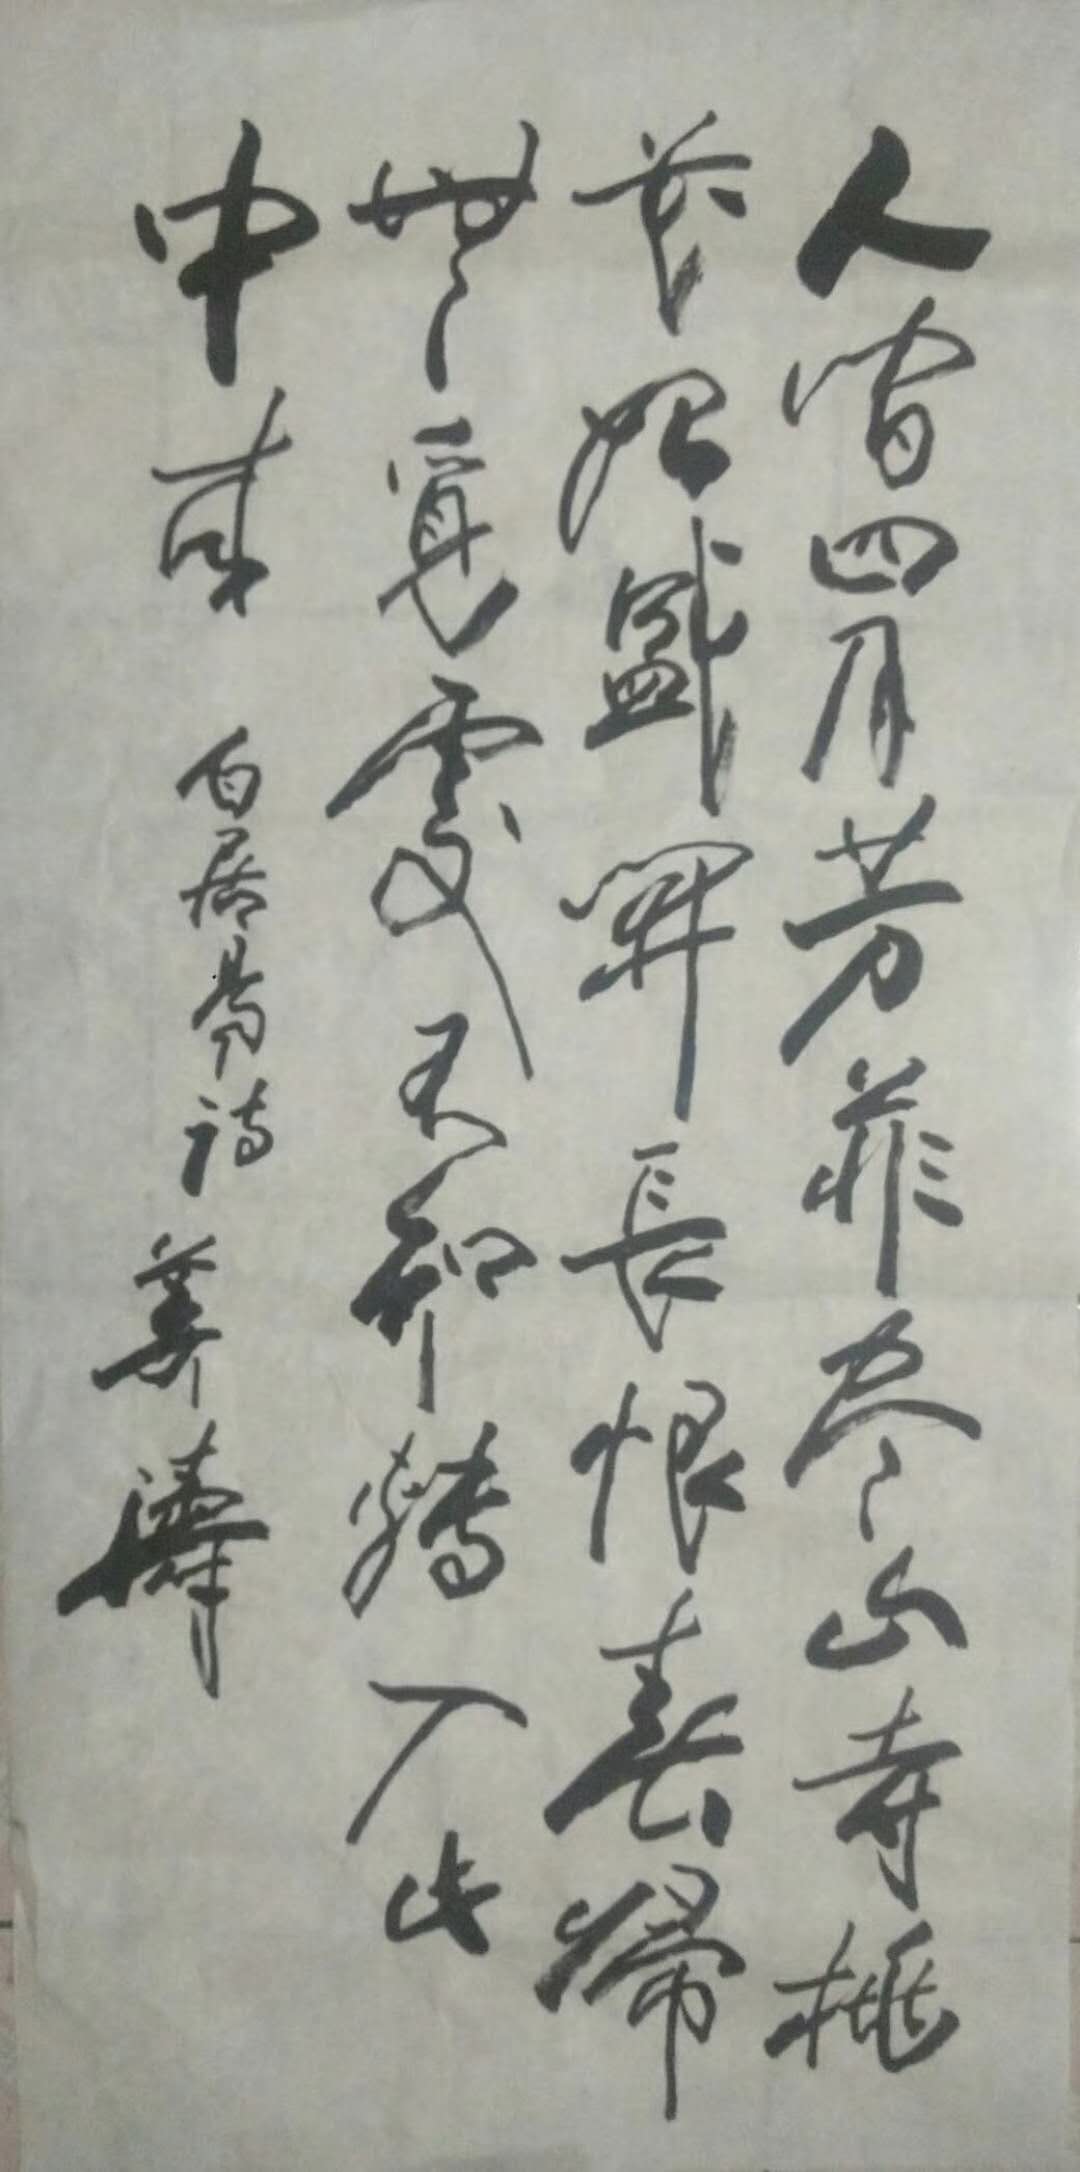 人間四月芳菲尽山寺桃
花始盛開長恨春歸
無覓處不知轉入此
中來 白居易詩